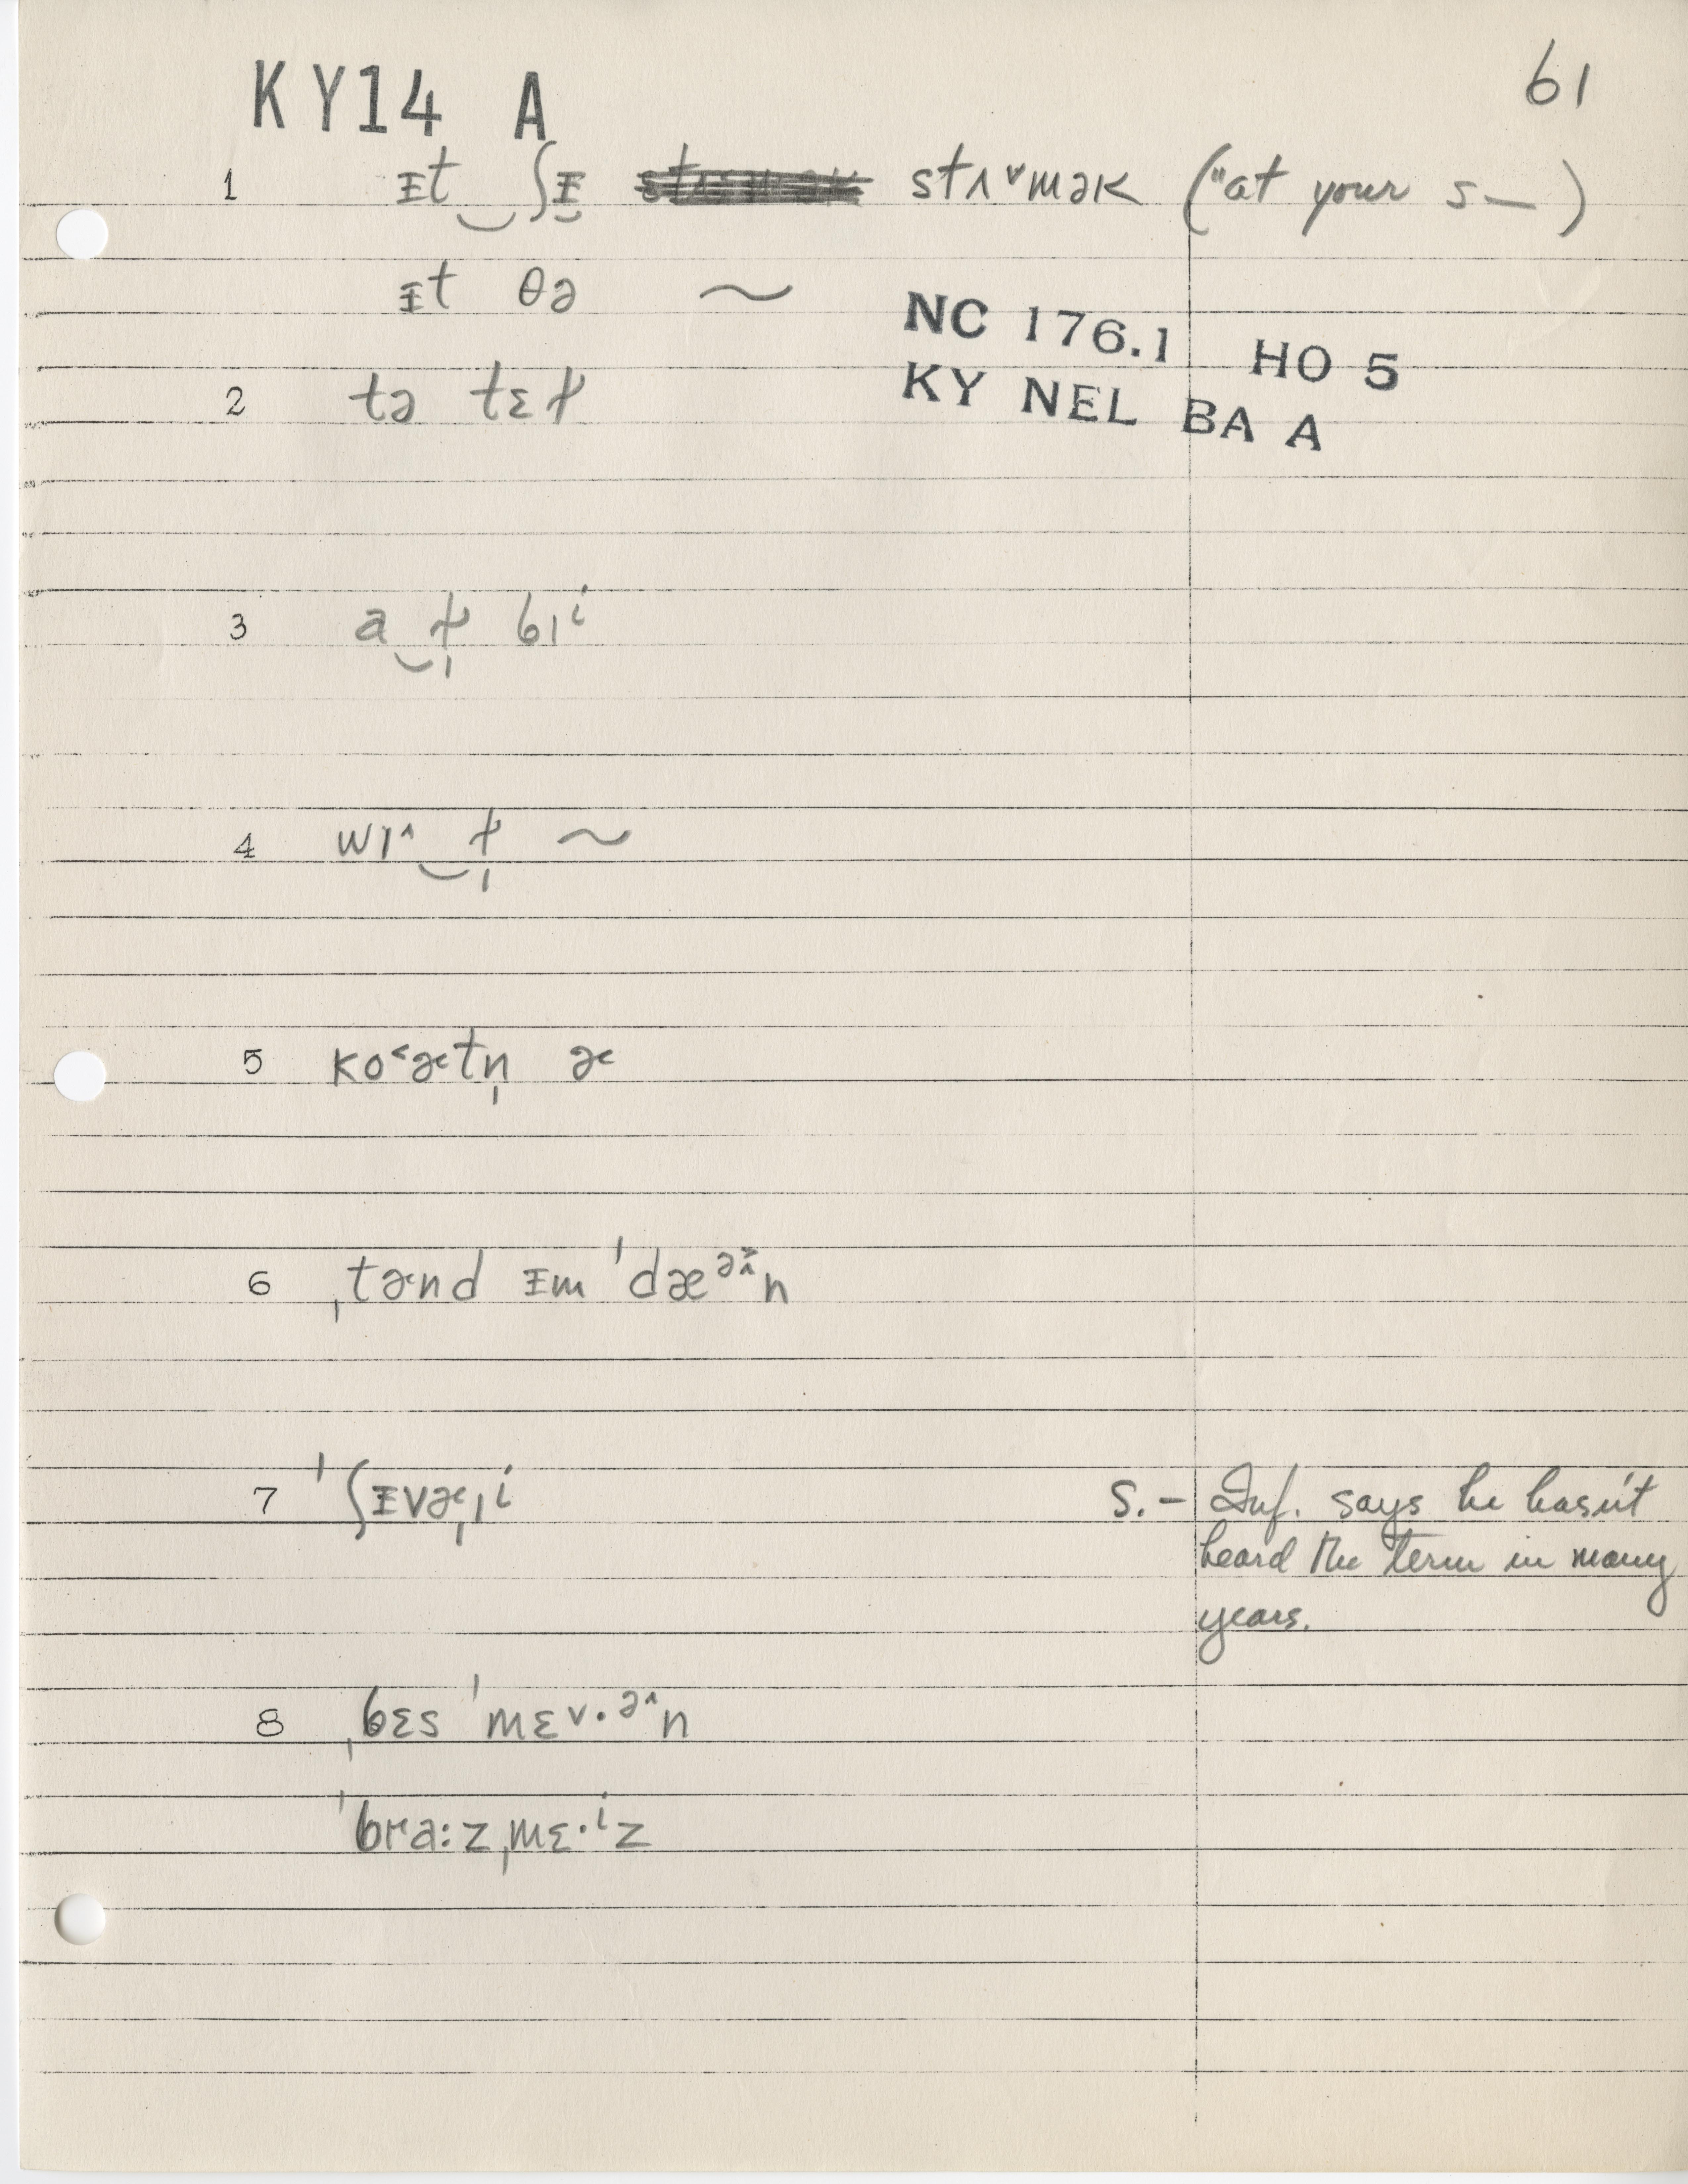 KY14 A
61
1 ᵻt‿ʃᵻ stʌ˅mək ("at your s—)
ᵻt θə ~
NC 176.1 HO 5
KY NEL BA A
2 tə tɛɫ
3 a‿ɫ̩ bɪⁱ
4 wɪ^‿ɫ̩ ~
5 ko˂ɚtn̩ ɚ
6 ˌtɚnd ᵻm ˈdæᵊn
7 ˈʃᵻvɚˌi
S.- Inf. says he hasn't
heard the term in many
years.
8 ˌbɛs ˈmɛ˅·ᵊ^n
ˈbraːzˌmɛ·ⁱz